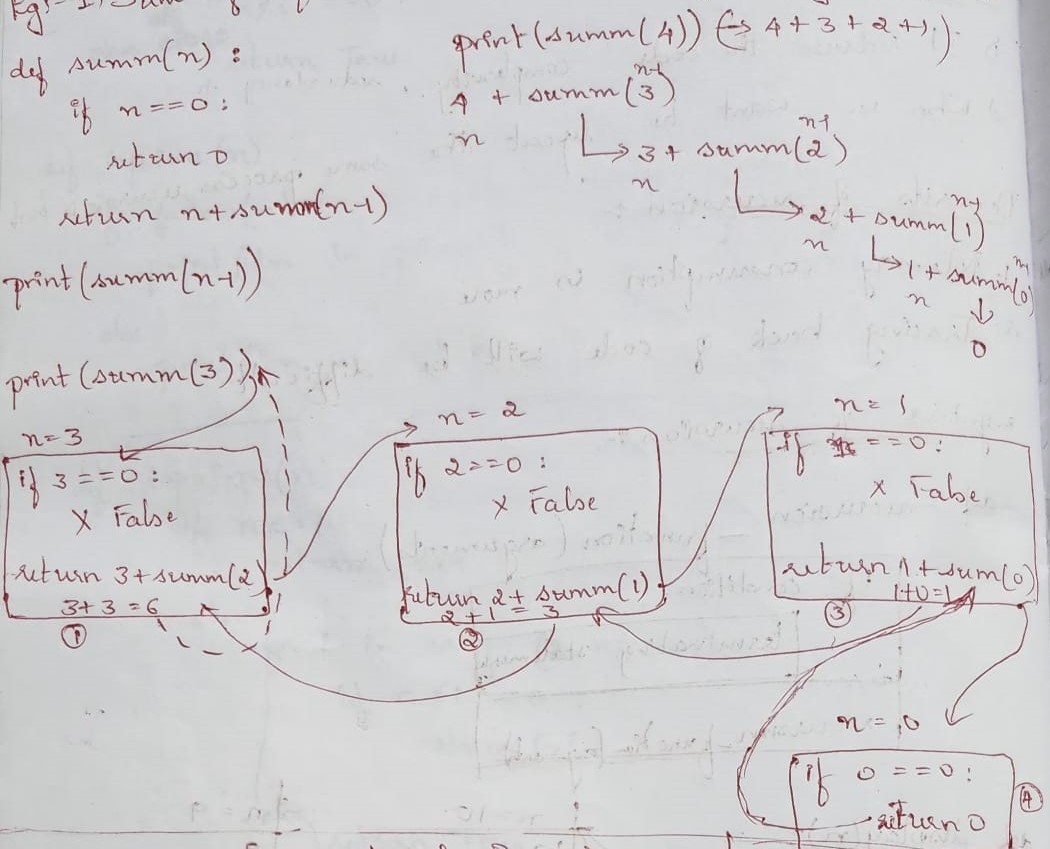 def summ(n) :
if n==0 :
return 0
return n+summ(n-1)
print(summ(n-1))
print(summ(4)) (→ 4+3+2+1)
n-1
4 + summ(3)
n
n-1
3+ summ(2)
n
n-1
2 + summ(1)
n
1 + summ(0)
n
0
print(summ(3))
n=3
if 3==0 :
X False
return 3+summ(2)
3+3=6
①
n= 2
if 2==0 :
X False
return 2+ summ(1)
2+1= 3
②
n= 1
if 1 ==0 :
X False
return 1+sum(0)
1+0=1
③
n= 0
if 0 ==0 :
return 0
④